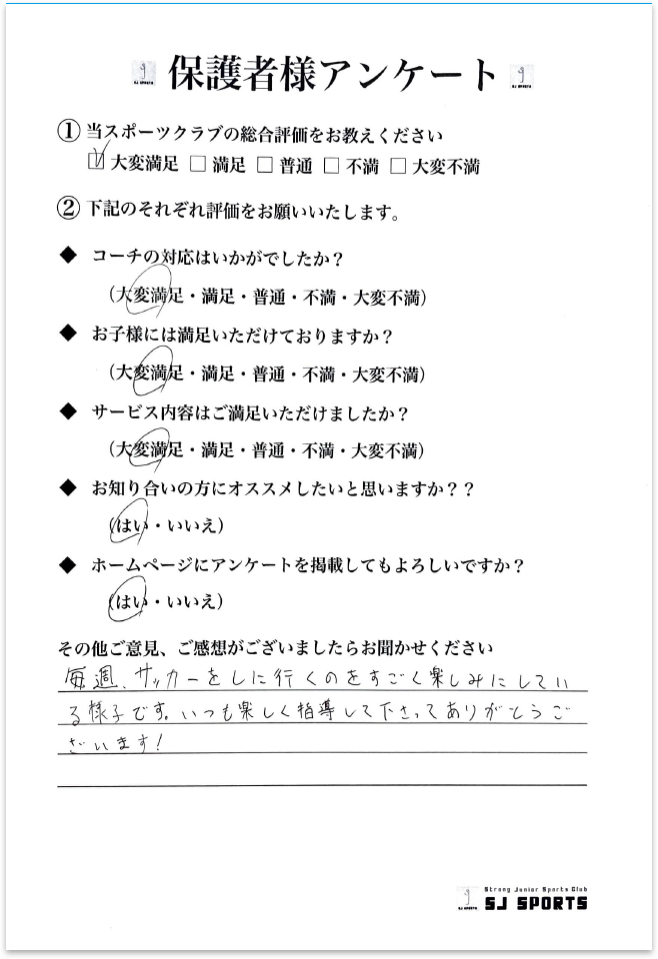 保護者様アンケート
SJ SPORTS
SJ SPORTS
① 当スポーツクラブの総合評価をお教えください
☑ 大変満足 □ 満足 □ 普通 □ 不満 □ 大変不満
② 下記のそれぞれ評価をお願いいたします。
◆ コーチの対応はいかがでしたか？
（大変満足・満足・普通・不満・大変不満）
◆ お子様には満足いただけておりますか？
（大変満足・満足・普通・不満・大変不満）
◆ サービス内容はご満足いただけましたか？
（大変満足・満足・普通・不満・大変不満）
◆ お知り合いの方にオススメしたいと思いますか？？
（はい・いいえ）
◆ ホームページにアンケートを掲載してもよろしいですか？
（はい・いいえ）
その他ご意見、ご感想がございましたらお聞かせください
毎週、サッカーをしに行くのをすごく楽しみにしてい
る様子です。いつも楽しく指導して下さってありがとうご
ざいます！
Strong Junior Sports Club
SJ SPORTS
SJ SPORTS